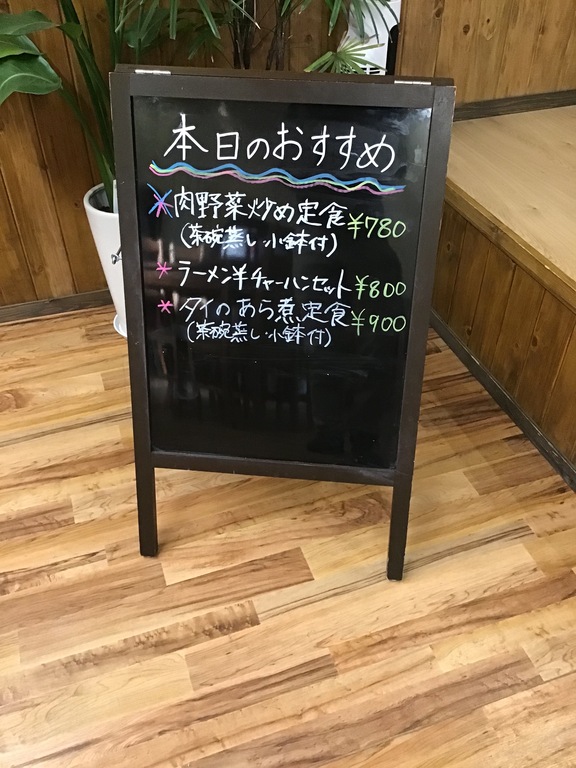 本日のおすすめ
*肉野菜炒め定食 ¥780
(茶碗蒸し・小鉢付)
*ラーメン半チャーハンセット ¥800
*タイのあら煮定食 ¥900
(茶碗蒸し・小鉢付)